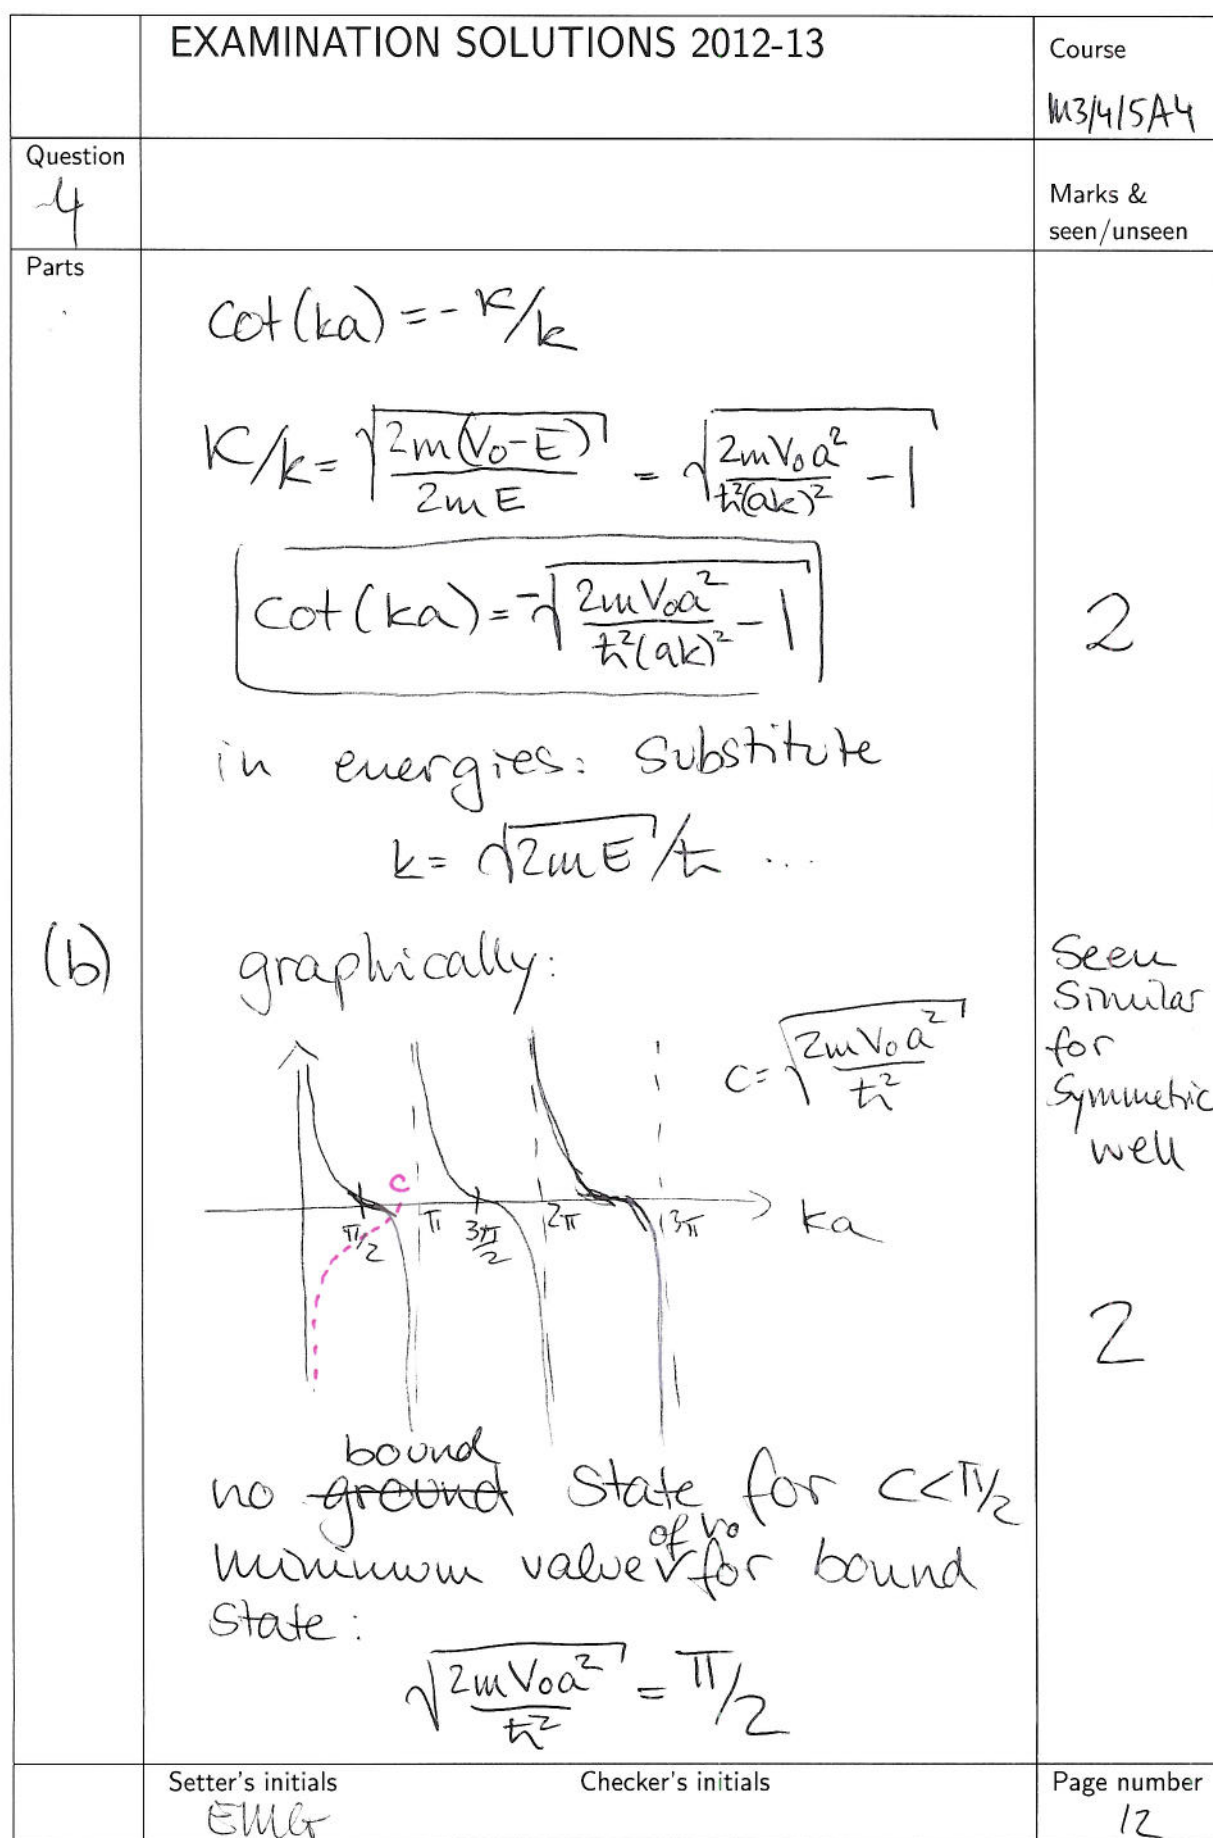 EXAMINATION SOLUTIONS 2012-13
Course
M3/4/5A4
Question
4
Marks &
seen/unseen
Parts
cot(ka) = - K/k
K/k = √(2m(V₀-E)/2mE) = √(2mV₀a²/ħ²(ak)² - 1)
cot(ka) = -√(2mV₀a²/ħ²(ak)² - 1)
2
in energies: substitute
k = √2mE/ħ ...
(b)
graphically:
Seen
Similar
for
Symmetric
well
c = √(2mV₀a²/ħ²)
c
π/2
π
3π/2
2π
3π
ka
2
bound
no ground state for c<π/2
of V₀
minimum value for bound
state:
√(2mV₀a²/ħ²) = π/2
Setter's initials
EMG
Checker's initials
Page number
12